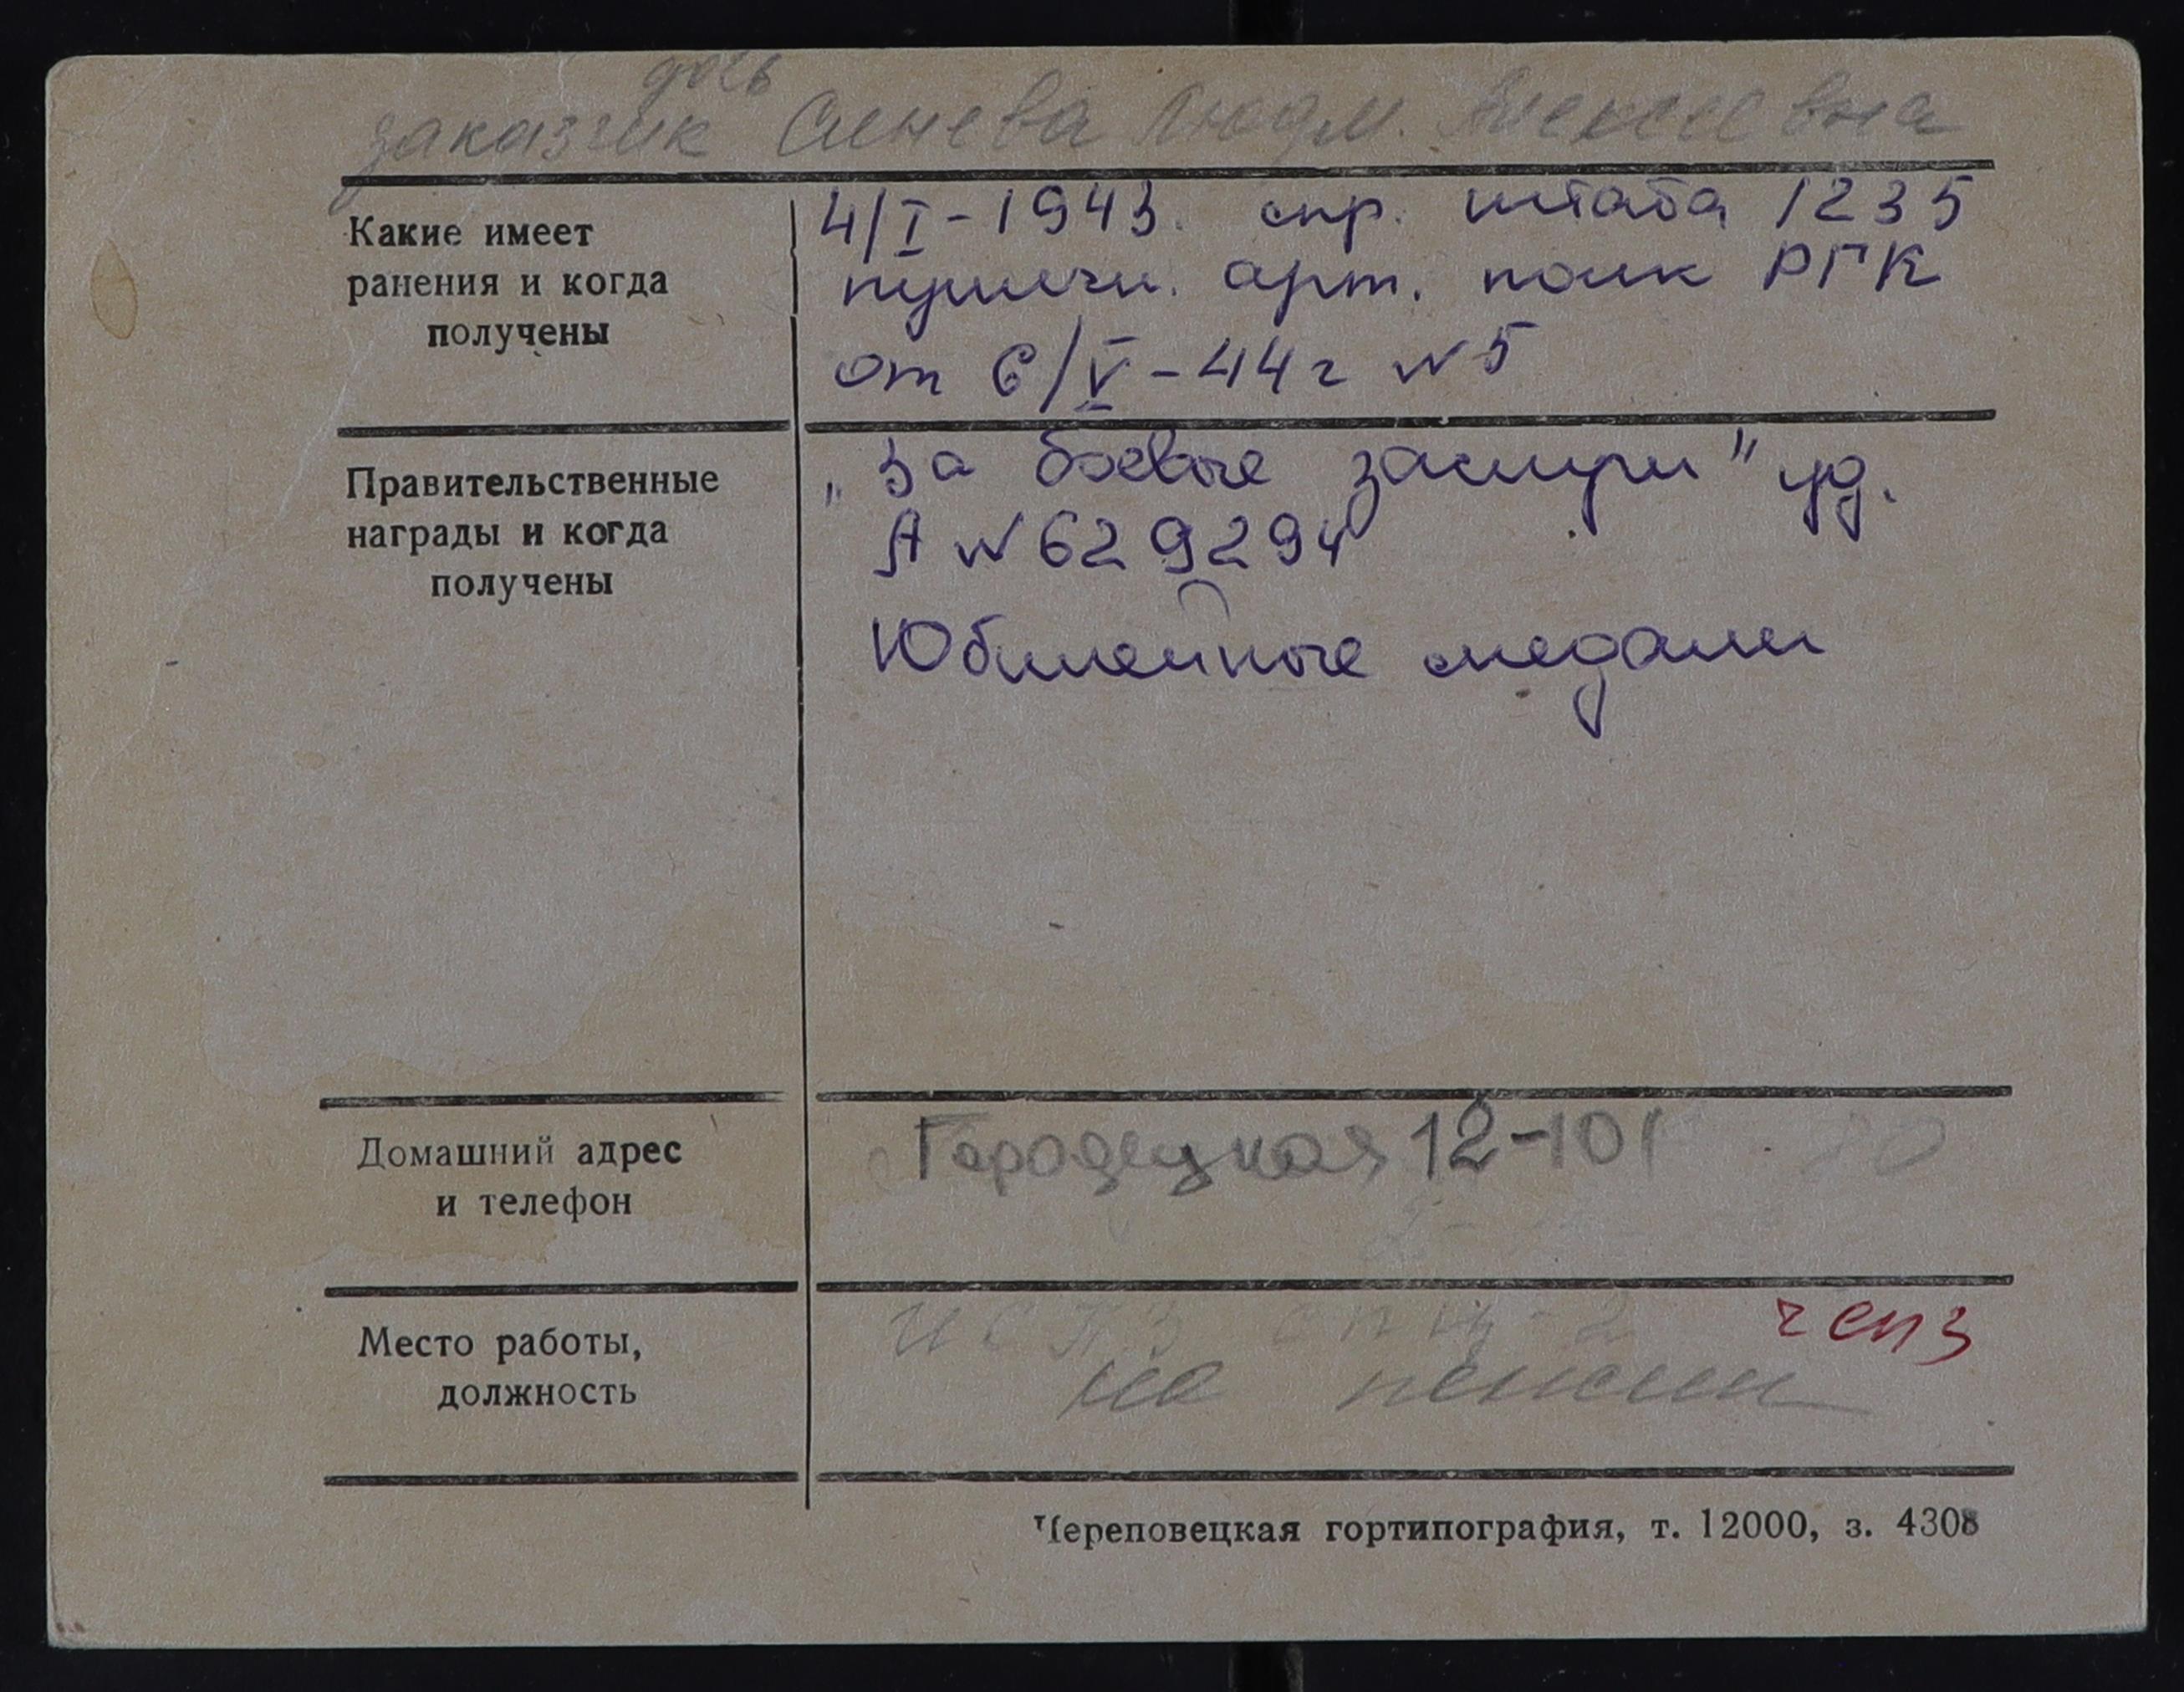 дочь
заказчик Синева Людм. Алексеевна
Какие имеет
ранения и когда
получены
4/I-1943. спр. штаба 1235
пушечн. арт. полк РГК
от 6/V-44г №5
Правительственные
награды и когда
получены
„За боевые заслуги" уд.
А №629294
Юбилейные медали
Домашний адрес
и телефон
Городецкая 12-101
Место работы,
должность
чспз
на пенсии
Череповецкая гортипография, т. 12000, з. 4308